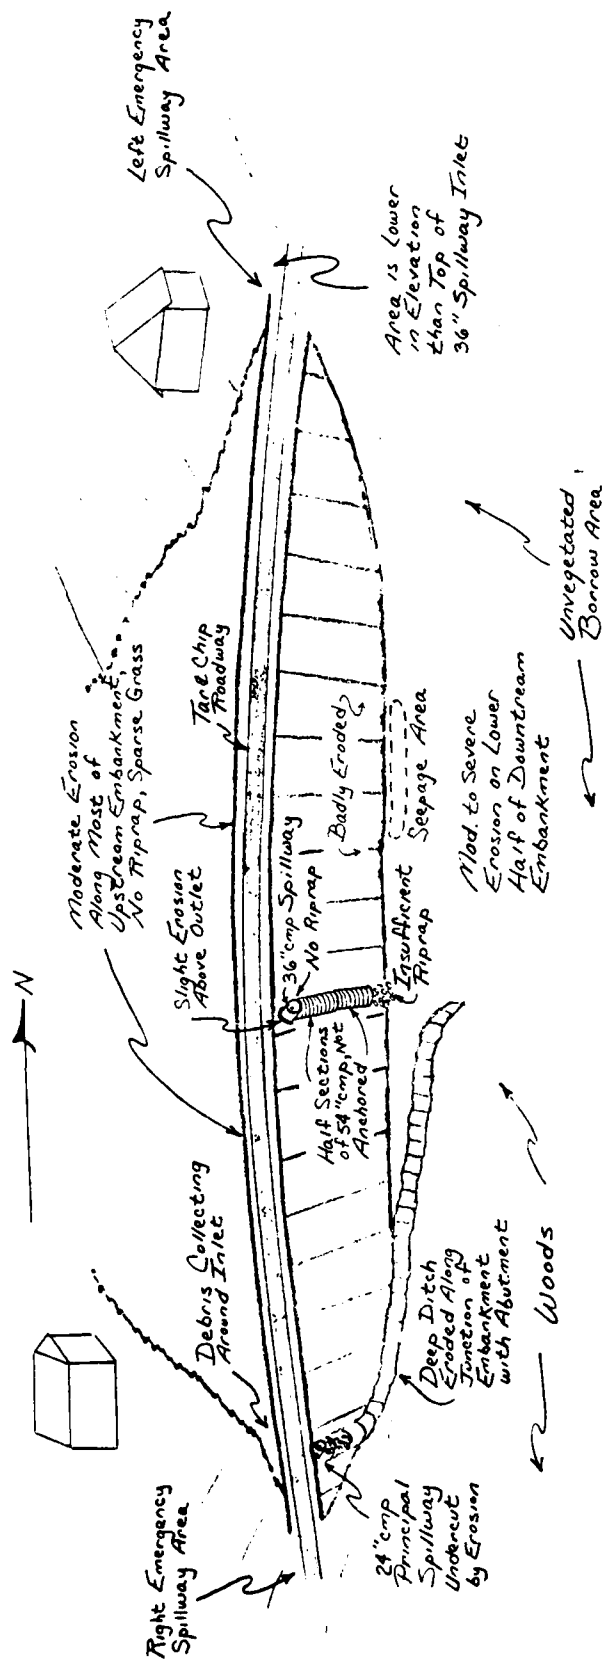 Left Emergency
Spillway Area
Area is Lower
in Elevation
than Top of
36" Spillway Inlet
Unvegetated
Borrow Area
Moderate Erosion
Along Most of
Upstream Embankment,
No Riprap, Sparse Grass
Tar & Chip
Roadway
Badly Eroded
Seepage Area
Mod. to Severe
Erosion on Lower
Half of Downstream
Embankment
Slight Erosion
Above Outlet
36" cmp Spillway
No Riprap
Insufficient
Riprap
Half Sections
of 54" cmp, Not
Anchored
N
Debris Collecting
Around Inlet
Deep Ditch
Eroded Along
Junction of
Embankment
with Abutment
Woods
Right Emergency
Spillway Area
24" cmp
Principal
Spillway
Undercut
by Erosion